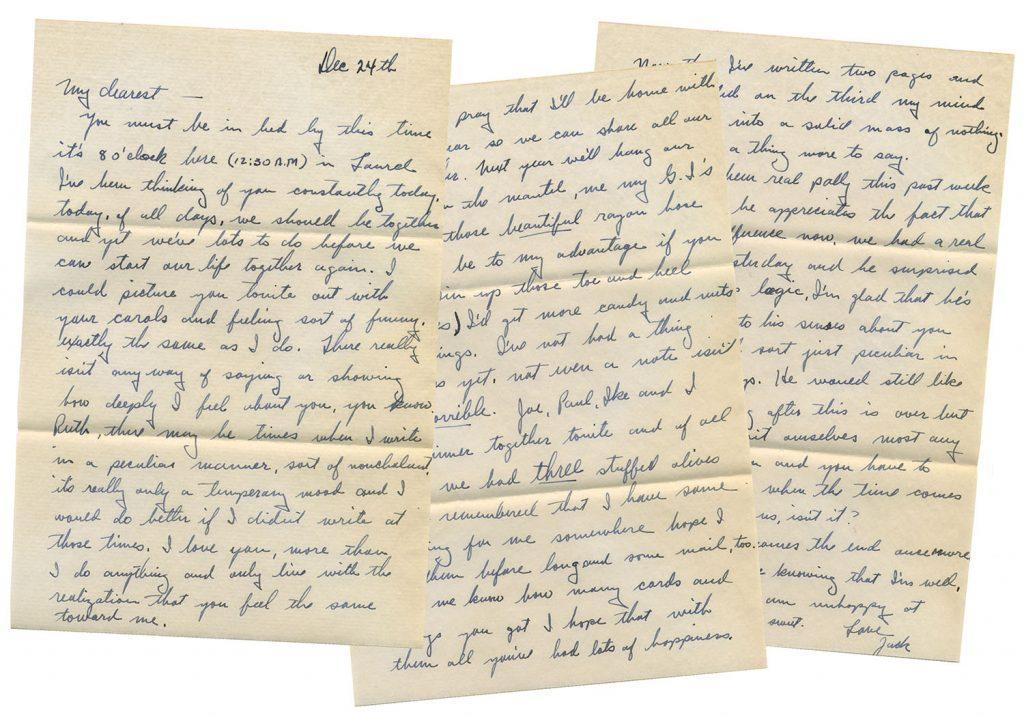 Dec 24th
My dearest —
You must be in bed by this time
it's 8 o'clock here (12:30 A.M) in Laurel
I've been thinking of you constantly today,
today, of all days, we should be together
and yet we've lots to do before we
can start our life together again. I
could picture you tonite out with
your carols and feeling sort of funny,
exactly the same as I do. There really
isn't any way of saying or showing
how deeply I feel about you, you know
Ruth, there may be times when I write
in a peculiar manner, sort of nonchalant,
it's really only a temperary mood and I
would do better if I didn't write at
those times. I love you, more than
I do anything and only live with the
realization that you feel the same
toward me.
pray that I'll be home with
so we can share all our
Next year we'll hang our
the mantel, me my G.I's
those beautiful rayon hose
be to my advantage if you
up those toe and heel
I'll get more candy and nuts
I've not had a thing
yet, not even a note isn't
Joe, Paul, Ike and I
together tonite and of all
we had three stuffed olives
remembered that I have some
for me somewhere hope I
them before long and some mail, too.
me know how many cards and
you got I hope that with
them all you've had lots of happiness.
I've written two pages and
on the third my mind
into a solid mass of nothing.
a thing more to say.
been real pally this past week
he appreciates the fact that
now, we had a real
and he surprised
logic, I'm glad that he's
to his senses about you
sort just peculiar in
He would still like
after this is over but
ourselves most any
and you have to
when the time comes
isn't it?
comes the end once more
knowing that I'm well,
am unhappy at
Love
Jack